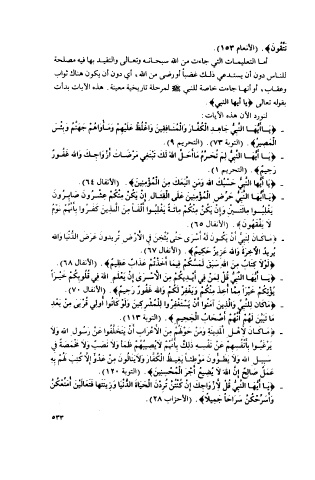 تَتَّقُونَ﴾. (الأنعام ١٥٣).
أما التعليمات التي جاءت من الله سبحانه وتعالى والتقيد بها فيه مصلحة
للناس دون أن يستدعي ذلك غضباً أو رضى من الله، أي دون أن يكون هناك ثواب
وعقاب، أو أنها جاءت خاصة للنبي ﷺ لمرحلة تاريخية معينة. هذه الآيات بدأت
بقوله تعالى ﴿يا أيها النبي﴾.
لنورد الآن هذه الآيات:
ـ ﴿يَا أَيُّهَا النَّبِيُّ جَاهِدِ الْكُفَّارَ وَالْمُنَافِقِينَ وَاغْلُظْ عَلَيْهِمْ وَمَأْوَاهُمْ جَهَنَّمُ وَبِئْسَ
الْمَصِيرُ﴾. (التوبة ٧٣)، (التحريم ٩).
ـ ﴿يَا أَيُّهَا النَّبِيُّ لِمَ تُحَرِّمُ مَا أَحَلَّ اللهُ لَكَ تَبْتَغِي مَرْضَاتَ أَزْوَاجِكَ وَاللهُ غَفُورٌ
رَحِيمٌ﴾. (التحريم ١).
ـ ﴿يَا أَيُّهَا النَّبِيُّ حَسْبُكَ اللهُ وَمَنِ اتَّبَعَكَ مِنَ الْمُؤْمِنِينَ﴾. (الأنفال ٦٤).
ـ ﴿يَا أَيُّهَا النَّبِيُّ حَرِّضِ الْمُؤْمِنِينَ عَلَى الْقِتَالِ إِنْ يَكُنْ مِنْكُمْ عِشْرُونَ صَابِرُونَ
يَغْلِبُوا مِائَتَيْنِ وَإِنْ يَكُنْ مِنْكُمْ مِائَةٌ يَغْلِبُوا أَلْفاً مِنَ الَّذِينَ كَفَرُوا بِأَنَّهُمْ قَوْمٌ
لَا يَفْقَهُونَ﴾. (الأنفال ٦٥).
ـ ﴿مَا كَانَ لِنَبِيٍّ أَنْ يَكُونَ لَهُ أَسْرَى حَتَّى يُثْخِنَ فِي الْأَرْضِ تُرِيدُونَ عَرَضَ الدُّنْيَا وَاللهُ
يُرِيدُ الْآخِرَةَ وَاللهُ عَزِيزٌ حَكِيمٌ﴾. (الأنفال ٦٧).
﴿لَوْلَا كِتَابٌ مِنَ اللهِ سَبَقَ لَمَسَّكُمْ فِيمَا أَخَذْتُمْ عَذَابٌ عَظِيمٌ﴾. (الأنفال ٦٨).
ـ ﴿يَا أَيُّهَا النَّبِيُّ قُلْ لِمَنْ فِي أَيْدِيكُمْ مِنَ الْأَسْرَى إِنْ يَعْلَمِ اللهُ فِي قُلُوبِكُمْ خَيْراً
يُؤْتِكُمْ خَيْراً مِمَّا أُخِذَ مِنْكُمْ وَيَغْفِرْ لَكُمْ وَاللهُ غَفُورٌ رَحِيمٌ﴾. (الأنفال ٧٠).
ـ ﴿مَا كَانَ لِلنَّبِيِّ وَالَّذِينَ آمَنُوا أَنْ يَسْتَغْفِرُوا لِلْمُشْرِكِينَ وَلَوْ كَانُوا أُولِي قُرْبَى مِنْ بَعْدِ
مَا تَبَيَّنَ لَهُمْ أَنَّهُمْ أَصْحَابُ الْجَحِيمِ﴾. (التوبة ١١٣).
ـ ﴿مَا كَانَ لِأَهْلِ الْمَدِينَةِ وَمَنْ حَوْلَهُمْ مِنَ الْأَعْرَابِ أَنْ يَتَخَلَّفُوا عَنْ رَسُولِ اللهِ وَلَا
يَرْغَبُوا بِأَنْفُسِهِمْ عَنْ نَفْسِهِ ذَلِكَ بِأَنَّهُمْ لَا يُصِيبُهُمْ ظَمَأٌ وَلَا نَصَبٌ وَلَا مَخْمَصَةٌ فِي
سَبِيلِ اللهِ وَلَا يَطَؤُونَ مَوْطِئاً يَغِيظُ الْكُفَّارَ وَلَا يَنَالُونَ مِنْ عَدُوٍّ إِلَّا كُتِبَ لَهُمْ بِهِ
عَمَلٌ صَالِحٌ إِنَّ اللهَ لَا يُضِيعُ أَجْرَ الْمُحْسِنِينَ﴾. (التوبة ١٢٠).
ـ ﴿يَا أَيُّهَا النَّبِيُّ قُلْ لِأَزْوَاجِكَ إِنْ كُنْتُنَّ تُرِدْنَ الْحَيَاةَ الدُّنْيَا وَزِينَتَهَا فَتَعَالَيْنَ أُمَتِّعْكُنَّ
وَأُسَرِّحْكُنَّ سَرَاحاً جَمِيلاً﴾. (الأحزاب ٢٨).
٥٣٣